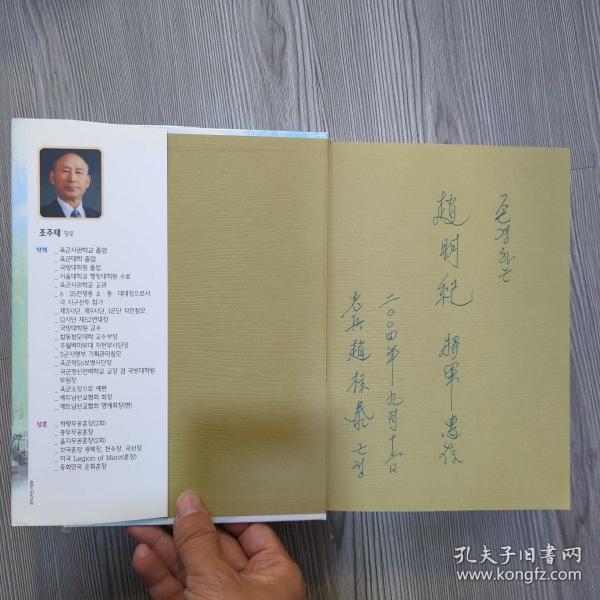 조주태 장로
약력
_ 육군사관학교 졸업
_ 육군대학 졸업
_ 국방대학원 졸업
_ 서울대학교 행정대학원 수료
_ 육군사관학교 교관
_ 6·25전쟁중 소·중·대대장으로서
각 지구전투 참가
_ 제3사단, 제9사단, 1군단 작전참모
_ 12사단 제52연대장
_ 국방대학원 교수
_ 합동참모대학 교수부장
_ 주월백마부대 작전부사단장
_ 3군사령부 기획관리참모
_ 육군제56보병사단장
_ 국군정신전력학교 교장 겸 국방대학원
부원장
_ 육군소장으로 예편
_ 베트남선교협회 회장
_ 베트남선교협회 명예회장(현)
상훈
_ 화랑무공훈장(2회)
_ 충무무공훈장
_ 을지무공훈장(2회)
_ 보국훈장 광복장, 천수장, 국선장
_ 미국 Legion of Merit(훈장)
_ 중화민국 운휘훈장
존경하는
趙明紀 將軍惠存
二〇〇四年九月十三日
老兵 趙
孔夫子旧书网
www.kongfz.com